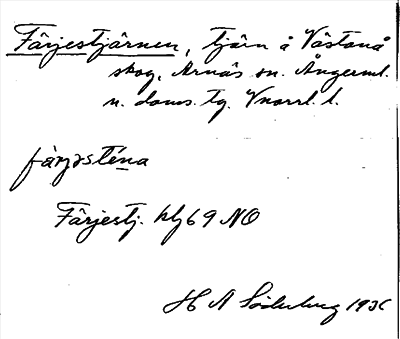 Färjestjärnen, tjärn å Västanå
skog, Arnäs sn. Ångerml.
n. doms. tg. Vnorrl. l.
Färjestj. hlj 69 NO
H A Söderberg 1936